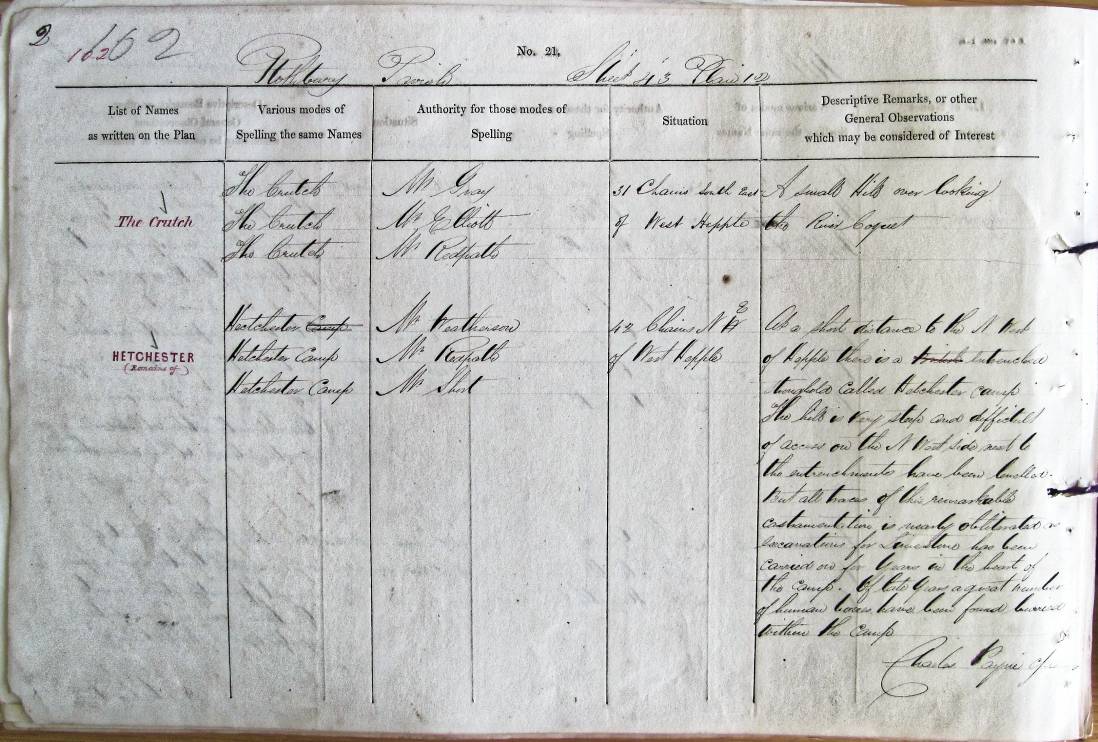 2
162 162
No. 21.
Rothbury Parish Sheet 43 Plan 12
List of Names
as written on the Plan
Various modes of
Spelling the same Names
Authority for those modes of
Spelling
Situation
Descriptive Remarks, or other
General Observations
which may be considered of Interest
The Crutch
The Crutch
The Crutch
The Crutch
Mr Gray
Mr Elliott
Mr Redpath
31 Chains South East
of West Hepple
A small Hill over looking
the River Coquet
HETCHESTER
(Remains of)
Hetchester Camp
Hetchester Camp
Hetchester Camp
Mr Weatherson
Mr Redpath
Mr Short
42 Chains N E
of West Hepple
At a short distance to the N West
of Hepple there is a British entrenched
stronghold called Hetchester camp
The hill is very steep and difficult
of access on the N West side next to
the entrenchments have been levelled.
But all traces of this remarkable
castramentation is nearly obliterated as
excavations for Limestone has been
carried on for years in the heart of
the Camp. Of late years a great number
of human bodies have been found buried
within the Camp
Charles Payne